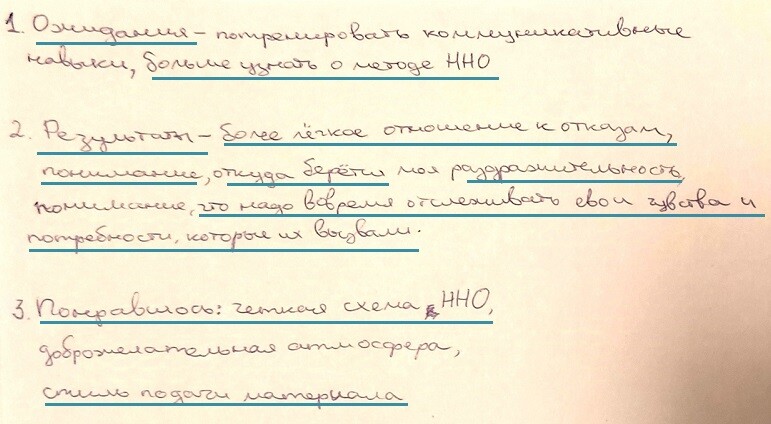 1. Ожидания – потренировать коммуникативные
навыки, больше узнать о методе ННО
2. Результат – более лёгкое отношение к отказам,
понимание, откуда берётся моя раздражительность,
понимание, что надо вовремя отслеживать свои чувства и
потребности, которые их вызвали.
3. Понравилось: четкая схема ННО,
доброжелательная атмосфера,
стиль подачи материала